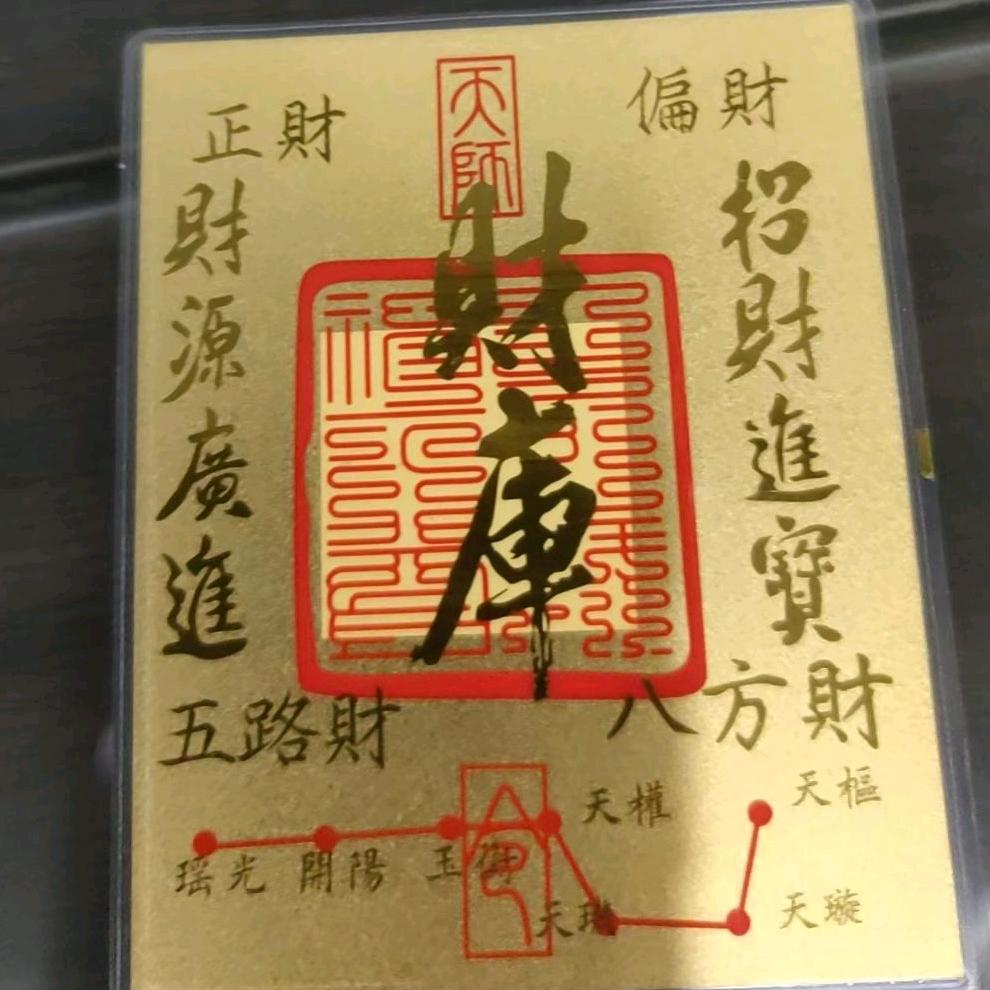 天師
偏財
招財進寶
八方財
財庫
正財
財源廣進
五路財
天樞
天璇
天璣
天權
玉衡
開陽
瑶光